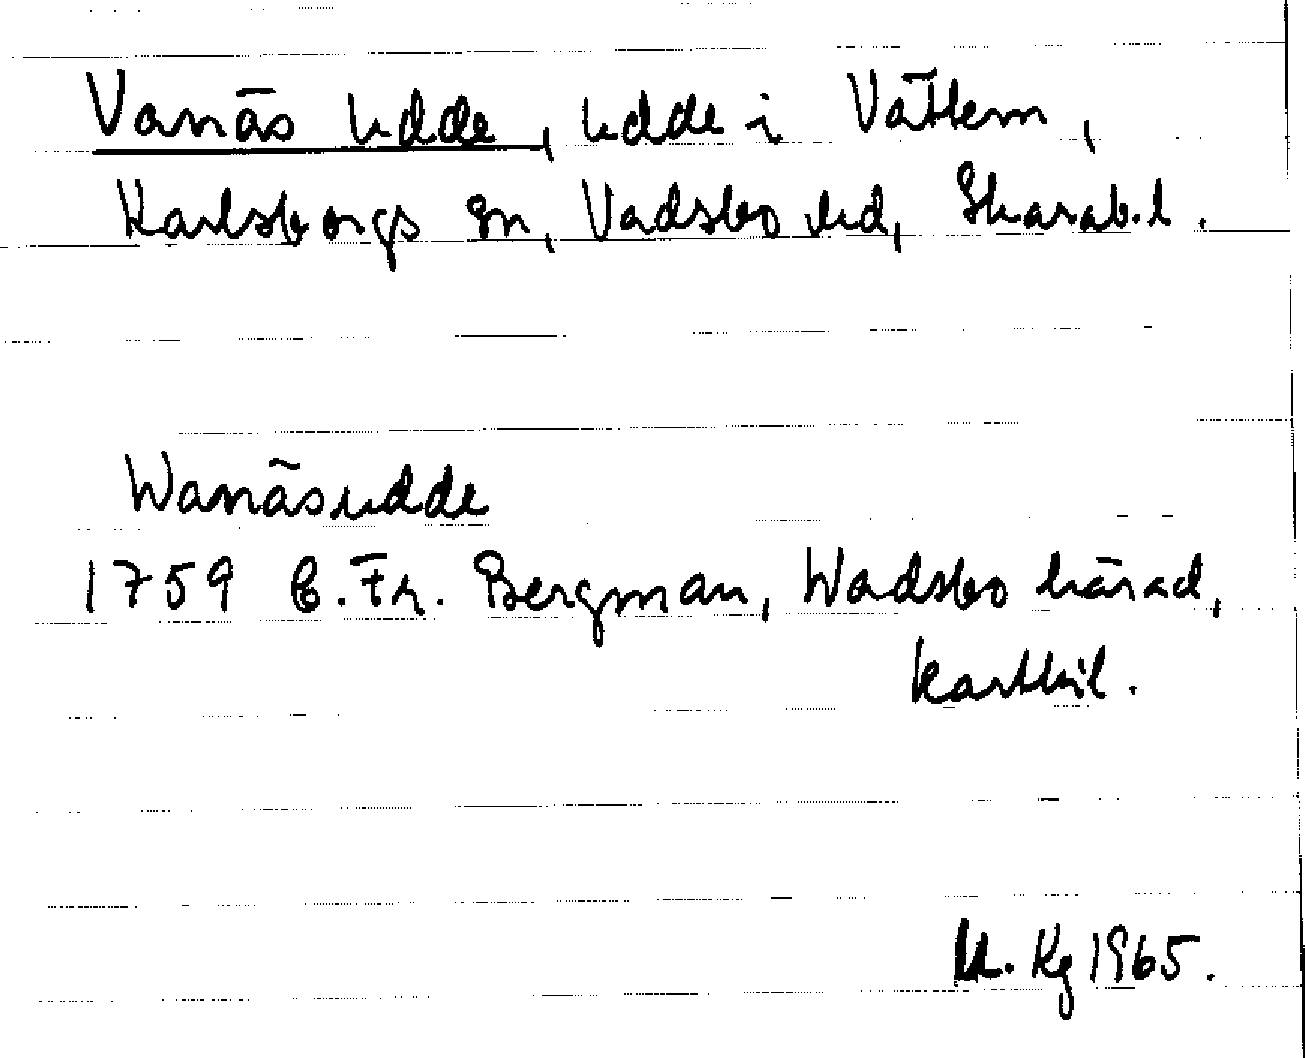 Vanäs udde, udde i Vättern,
Karlsborgs sn, Vadsbo hd, Skarab.l.
Wanäsudde
1759 C. Fr. Bergman, Wadsbo härad,
karttill.
U. Kg 1965.